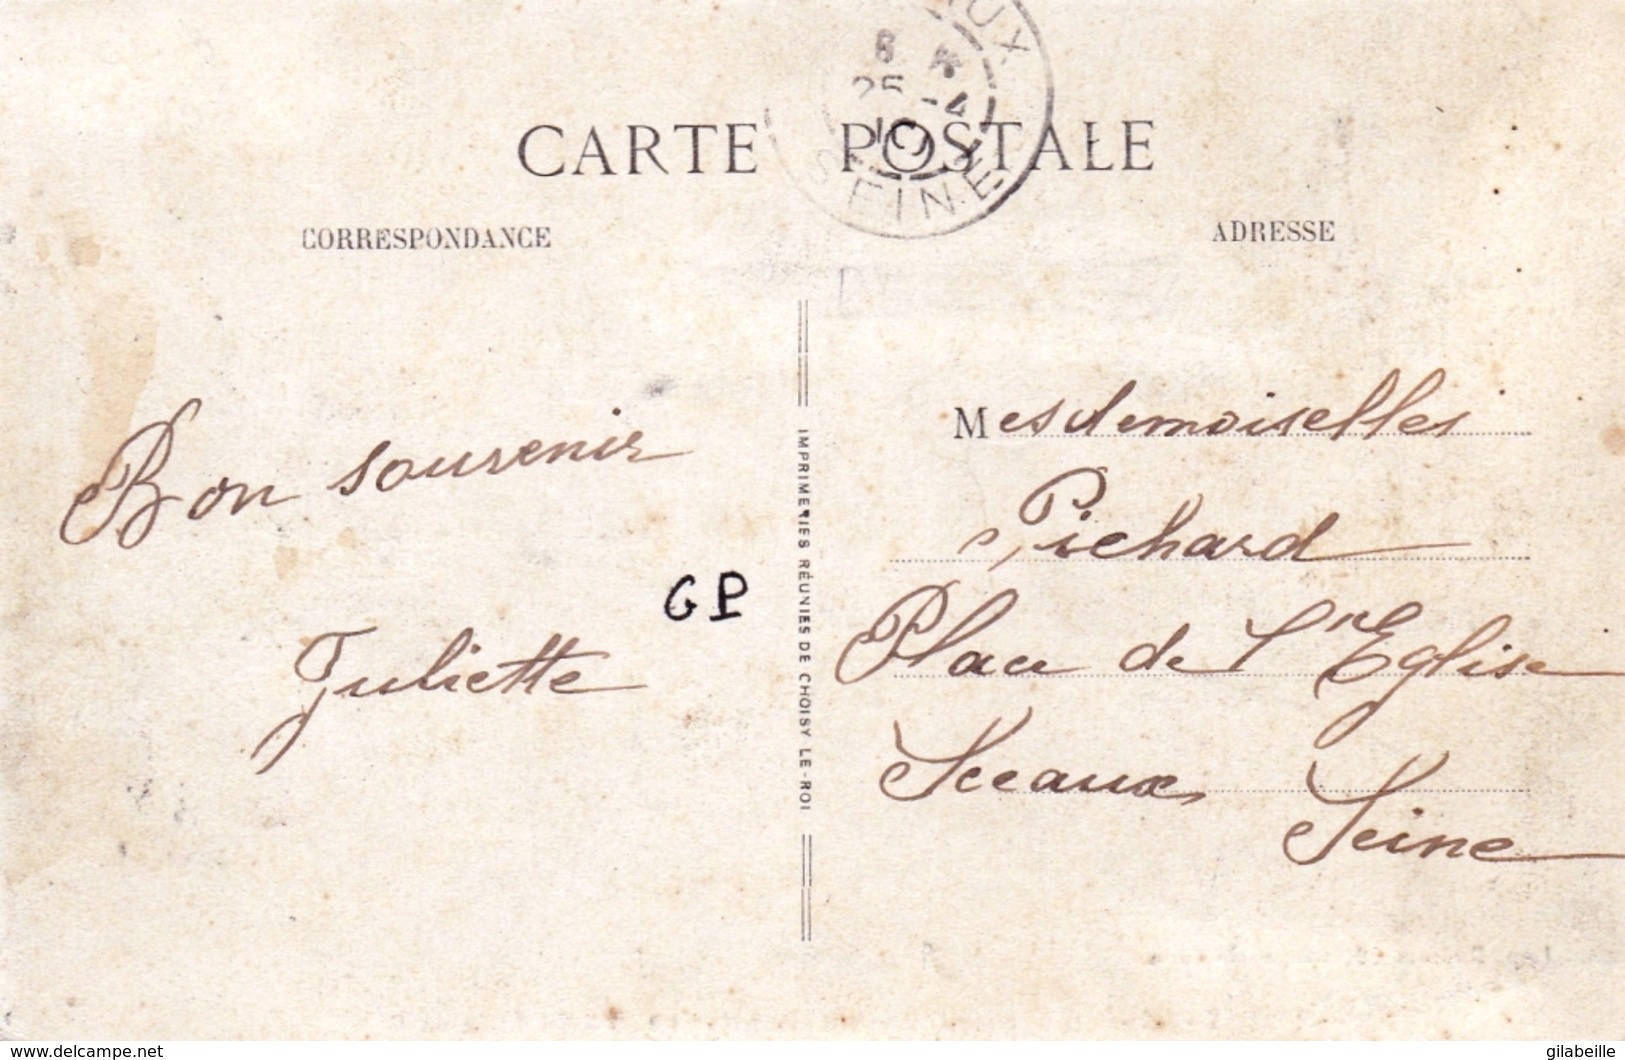 CARTE POSTALE
CORRESPONDANCE
ADRESSE
8
25 -4
10
SEINE
Bon souvenir
Juliette
GP
IMPRIMERIES RÉUNIES DE CHOISY LE-ROI
Mesdemoiselles
Pichard
Place de l'Eglise
Sceaux
Seine
www.delcampe.net
gilabeille